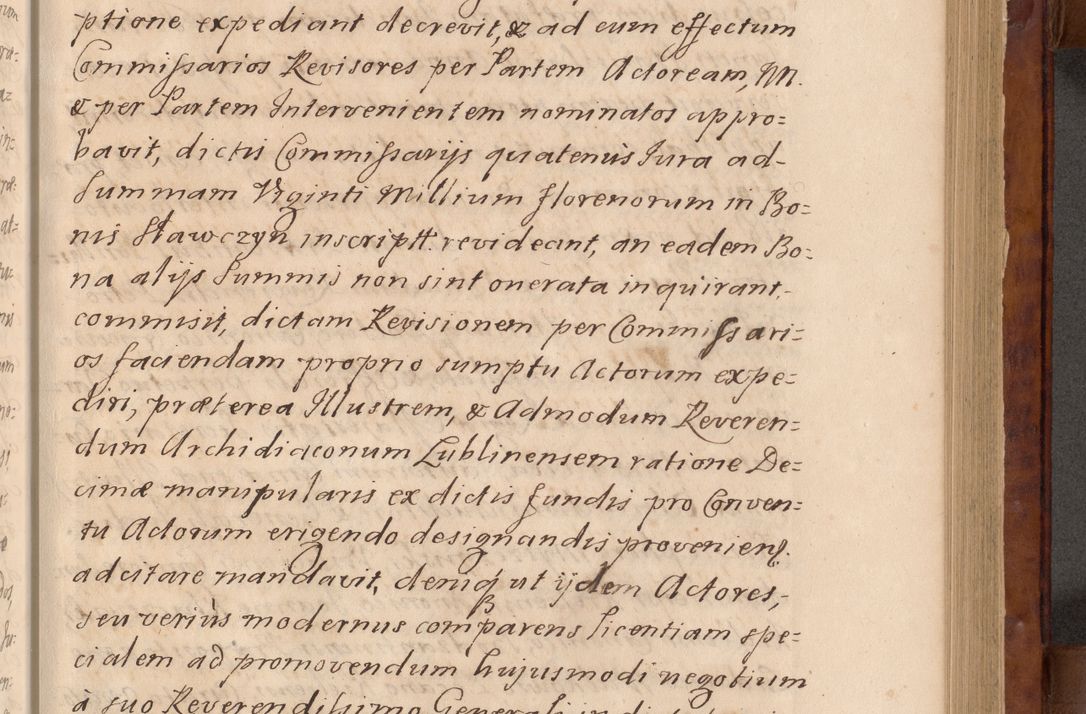 ptione expediant decrevit, & ad eum effectum
Commissarios Revisores per Partem Actoream, NN.
& per Partem Intervenientem nominatos appro=
bavit, dictis Commissarijs quatenus Jura ad-
Summam Viginti Millium florenorum in Bo=
nis Stawczyn inscriptt. revideant, an eadem Bo=
na alijs Summis non sint onerata inquirant,
commisit, dictam Revisionem per Commissari-
os faciendam proprio sumptu Actorum expe=
diri, præterea Illustrem, & Admodum Reveren=
dum Archidiaconum Lublinensem ratione De=
cimæ manipularis ex dictis fundis pro Conven=
tu Actorum erigendo designandis provenien.
adcitare mandavit, deniq ut ijdem Actores,
seu verius modernus comparens licentiam spe=
cialem ad promovendum hujusmodi negotium
à suo Reverendissimo Generali in